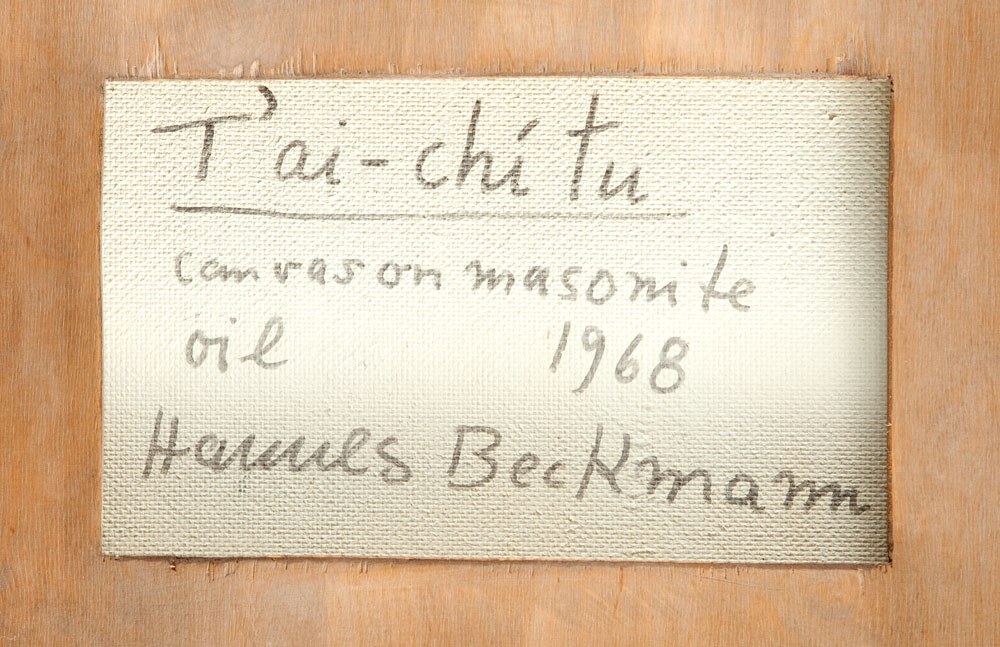 T'ai-chi tu
canvas on masonite
oil 1968
Hannes Beckmann